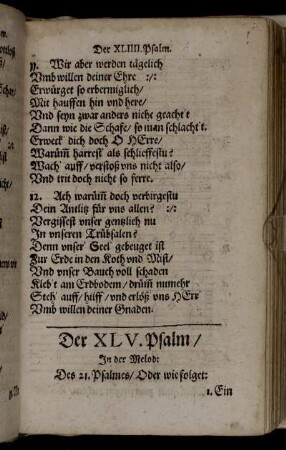 Der XLIIII. Psalm.
11. Wir aber werden tägelich
Vmb willen deiner Ehre :/:
Erwürget so erbermiglich/
Mit hauffen hin vnd here/
Vnd seyn zwar anders nicht geacht't
Dann wie die Schafe/ so man schlacht't.
Erweck dich doch O HErre/
Warům̃ harrest' als schlieffestu?
Wach' auff/ verstoß vns nicht also/
Vnd trit doch nicht so ferre.
12. Ach warům̃ doch verbirgestu
Dein Antlitz für vns allen? :/:
Vergissest vnser gentzlich nu
In vnseren Trübsalen?
Denn vnser Seel gebeuget ist
Zur Erde in den Koth vnd Mist/
Vnd vnser Bauch voll schaden
Kleb't am Erdbodem/ drům̃ numehr
Steh' auff/ hilff/ vnd erlöß vns HErr
Vmb willen deiner Gnaden.
Der XLV. Psalm/
In der Melod:
Des 21. Psalmes/ Oder wie folget:
1. Ein